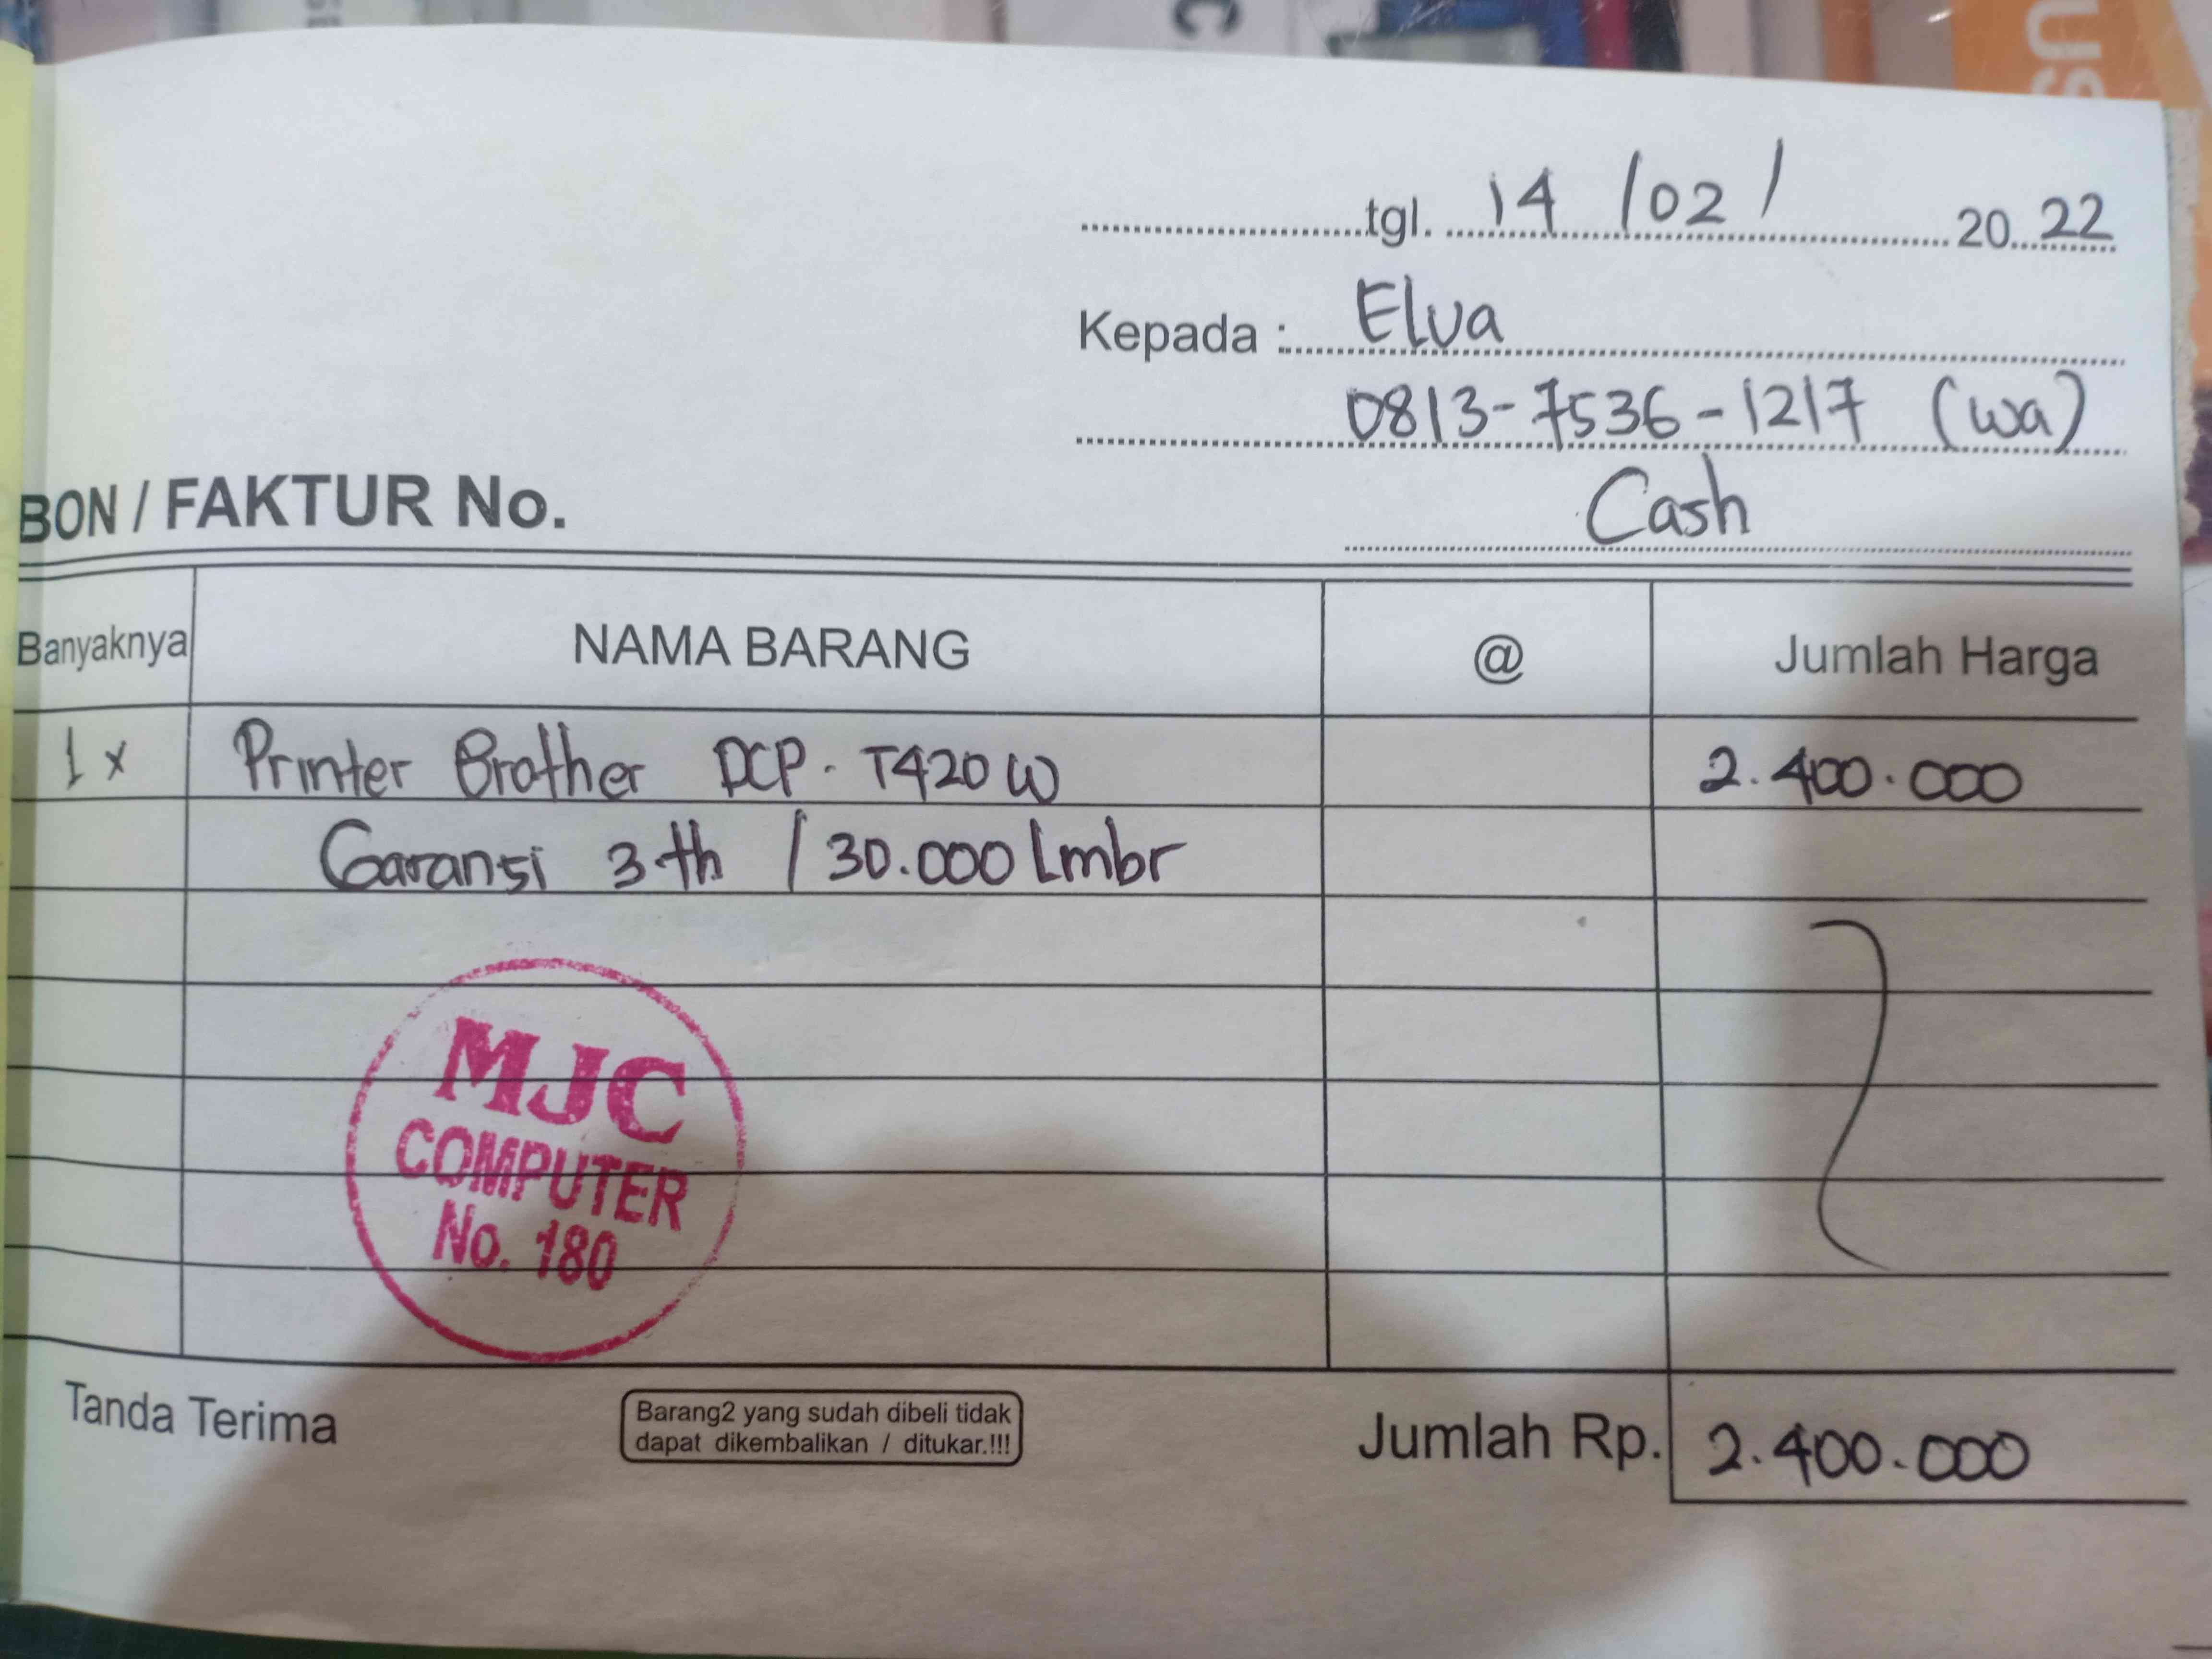 tgl. 14 /02/ 2022
Kepada : Elva
0813-7536-1217 (wa)
Cash
BON / FAKTUR No.
Banyaknya NAMA BARANG @ Jumlah Harga
1 x Printer Brother DCP - T420 W 2.400.000
Garansi 3 th / 30.000 Lmbr
MJC
COMPUTER
No. 180
Tanda Terima
Barang2 yang sudah dibeli tidak
dapat dikembalikan / ditukar.!!!
Jumlah Rp. 2.400.000